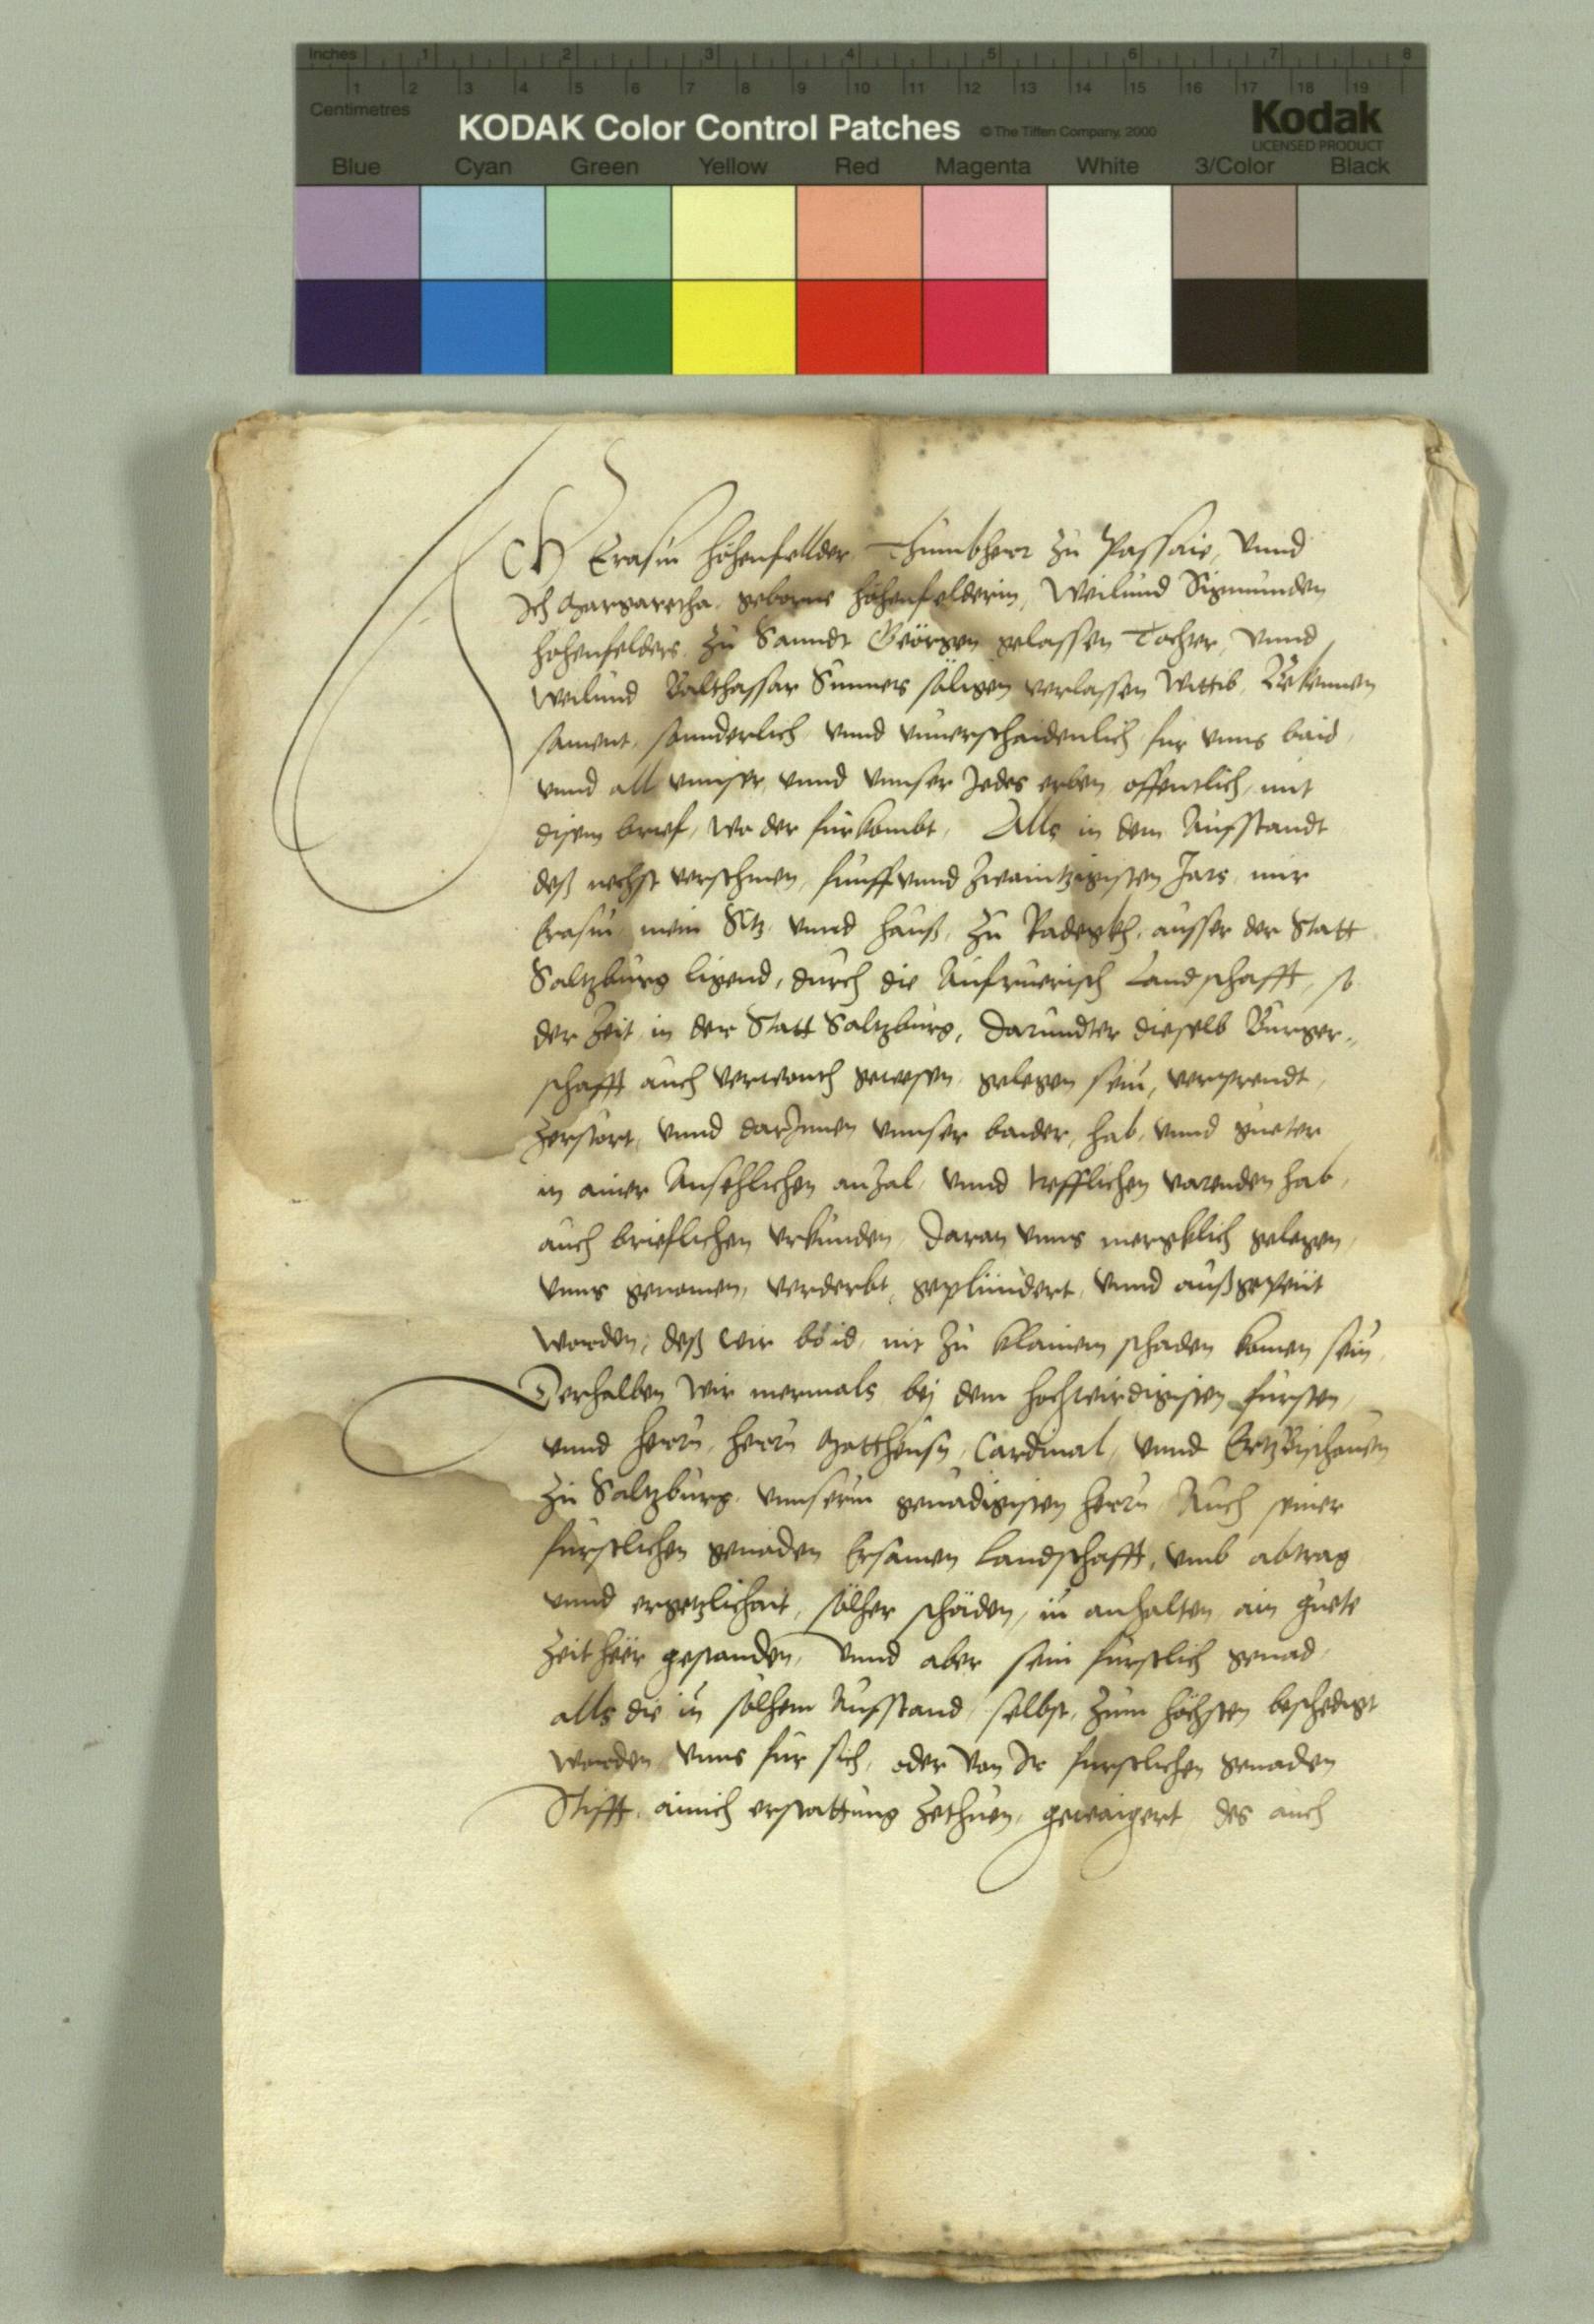 Inches 1 2 3 4 5 6 7 8
1 2 3 4 5 6 7 8 9 10 11 12 13 14 15 16 17 18 19
Centimetres
KODAK Color Control Patches © The Tiffen Company, 2000 Kodak
LICENSED PRODUCT
Blue Cyan Green Yellow Red Magenta White 3/Color Black
Ich Erasm Hohenfellder Thumbherr zu Passaw, vnnd
Ich Margaretha, geborne Hohenfelderin, Weilund Sigmunden
Hohenfelders zu Sanndt Geörgen gelassen Tochter, vnnd
Weilund Balthassar säligen verlassen Wittib, Bekennen
sament, sonnderlich vnnd vnuerschaidenlich für vnns baid,
vnnd all vnnser, vnnd vnnser Jedes erben, offentlich mit
disem brief, wo der fürkombt, Alls in dem Aufstandt
deß nechst verschinen, funff vnnd zwaintzigisten Jars, mir
Erasm mein Sitz vnnd hauß, zu Radegkh, ausser der Statt
Saltzburg ligend, durch die Aufruerisch Landschafft, so
der Zeit in der Statt Saltzburg, darundter dieselb Burger„
schafft auch verwonth gewesen, gelegen sein, verprendt,
zerstört, vnnd darJnnen vnnser baider, hab, vnnd güeter
in ainer Ansehlichen anzal, vnnd trefflichen varenden hab,
auch brieflichen vrkunden, daran vnns mergklich gelegen,
vnns genomen, verderbt, geplündert, vnnd außgepeüt
worden, deß wir baid, nit zu klainem schaden komen sein,
Derhalben wir mermals bej dem hochwirdigisten fürsten,
vnnd herrn, herrn Mattheusn, Cardinal, vnnd Ertzbischouen
zu Saltzburg, vnnserm genadigisten herrn, Auch seiner
fürstlichen genaden Ersamen Landschafft, vmb abtrag
vnnd ergetzlichait, sölher schäden, in anhalten, ain guete
Zeit heer gestanden, Vnnd aber sein fürstlich genad,
alls die in sölhem Aufstand, selbst, zum höchsten beschedigt
worden, vnns für sich, oder von Ir furstlichen genaden
Stifft, ainich erstattung zethuen, gewaigert, des auch